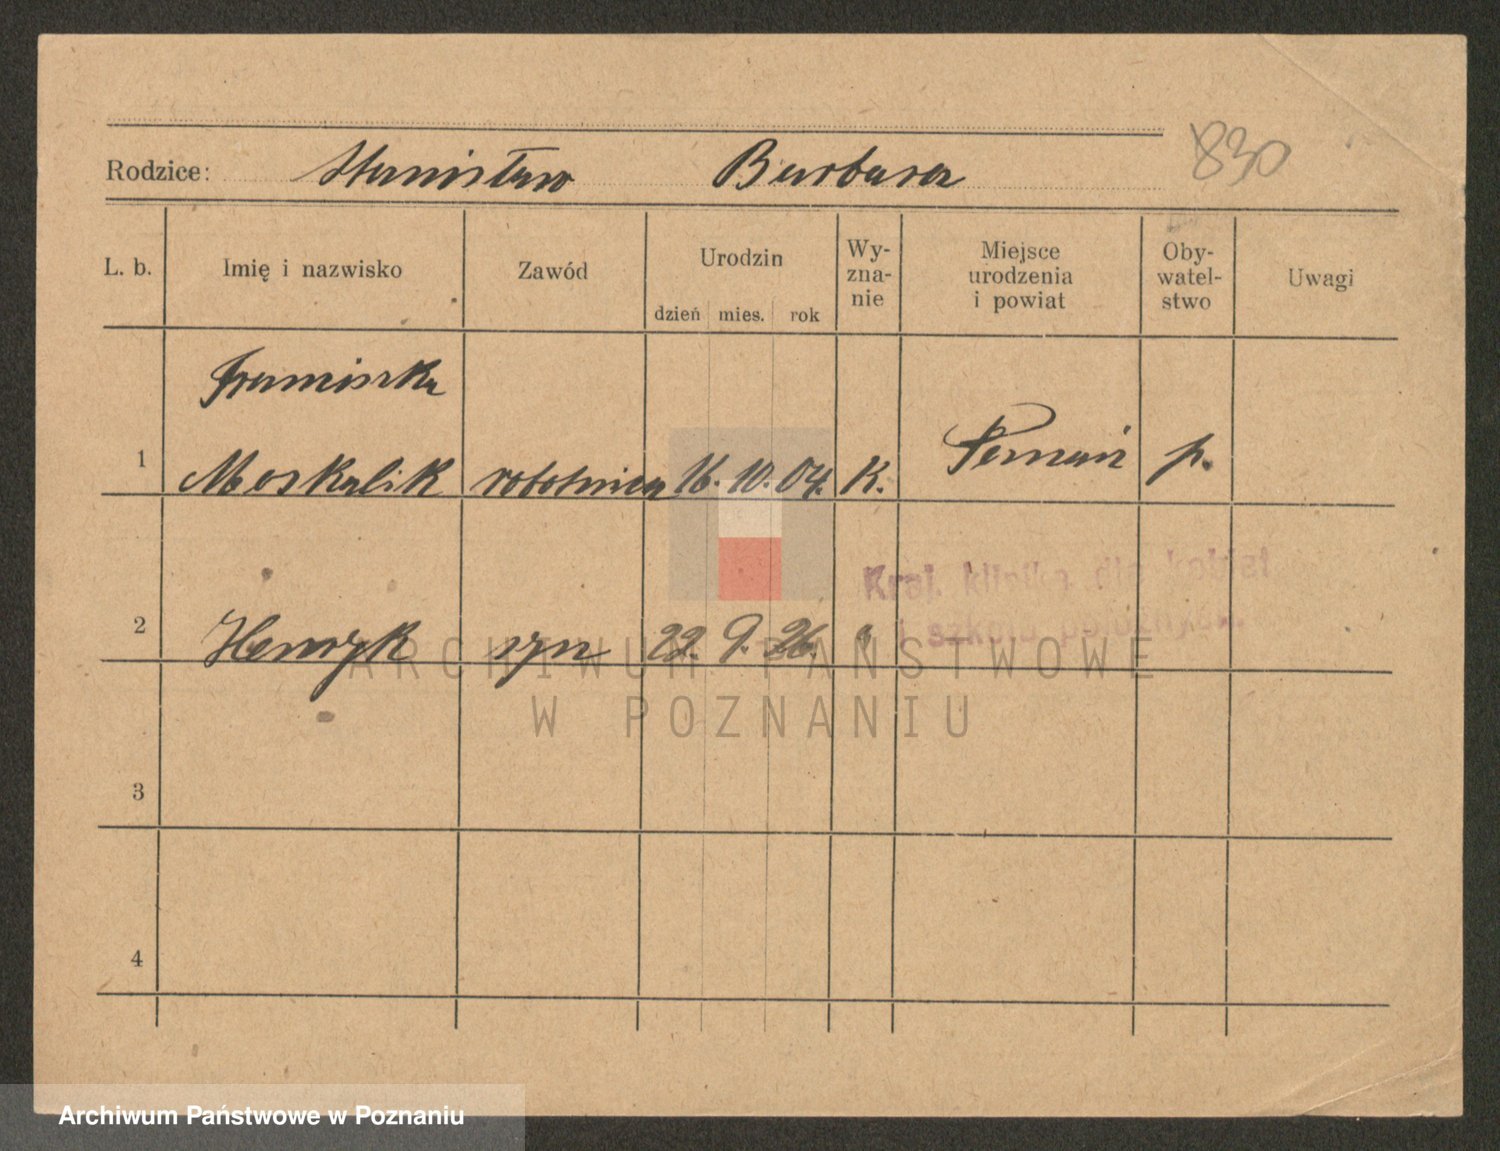 830
Rodzice: Stanisław Barbara
L. b. Imię i nazwisko Zawód Urodzin Wy-zna-nie Miejsce urodzenia i powiat Oby-watel-stwo Uwagi
dzień mies. rok
Franciszka
1 Moskalik robotnica 16. 10. 04. K. Poznań p.
Kraj. klinika dla kobiet
i szkoła położnych.
2 Henryk syn 22. 9. 26. "
ARCHIWUM PAŃSTWOWE
W POZNANIU
3
4
Archiwum Państwowe w Poznaniu